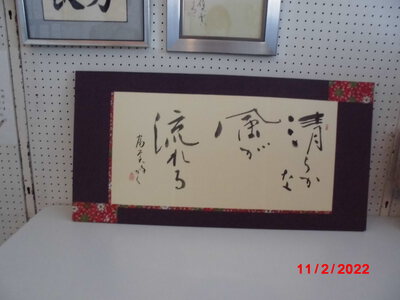 清らかな
風が
流れる
11/2/2022